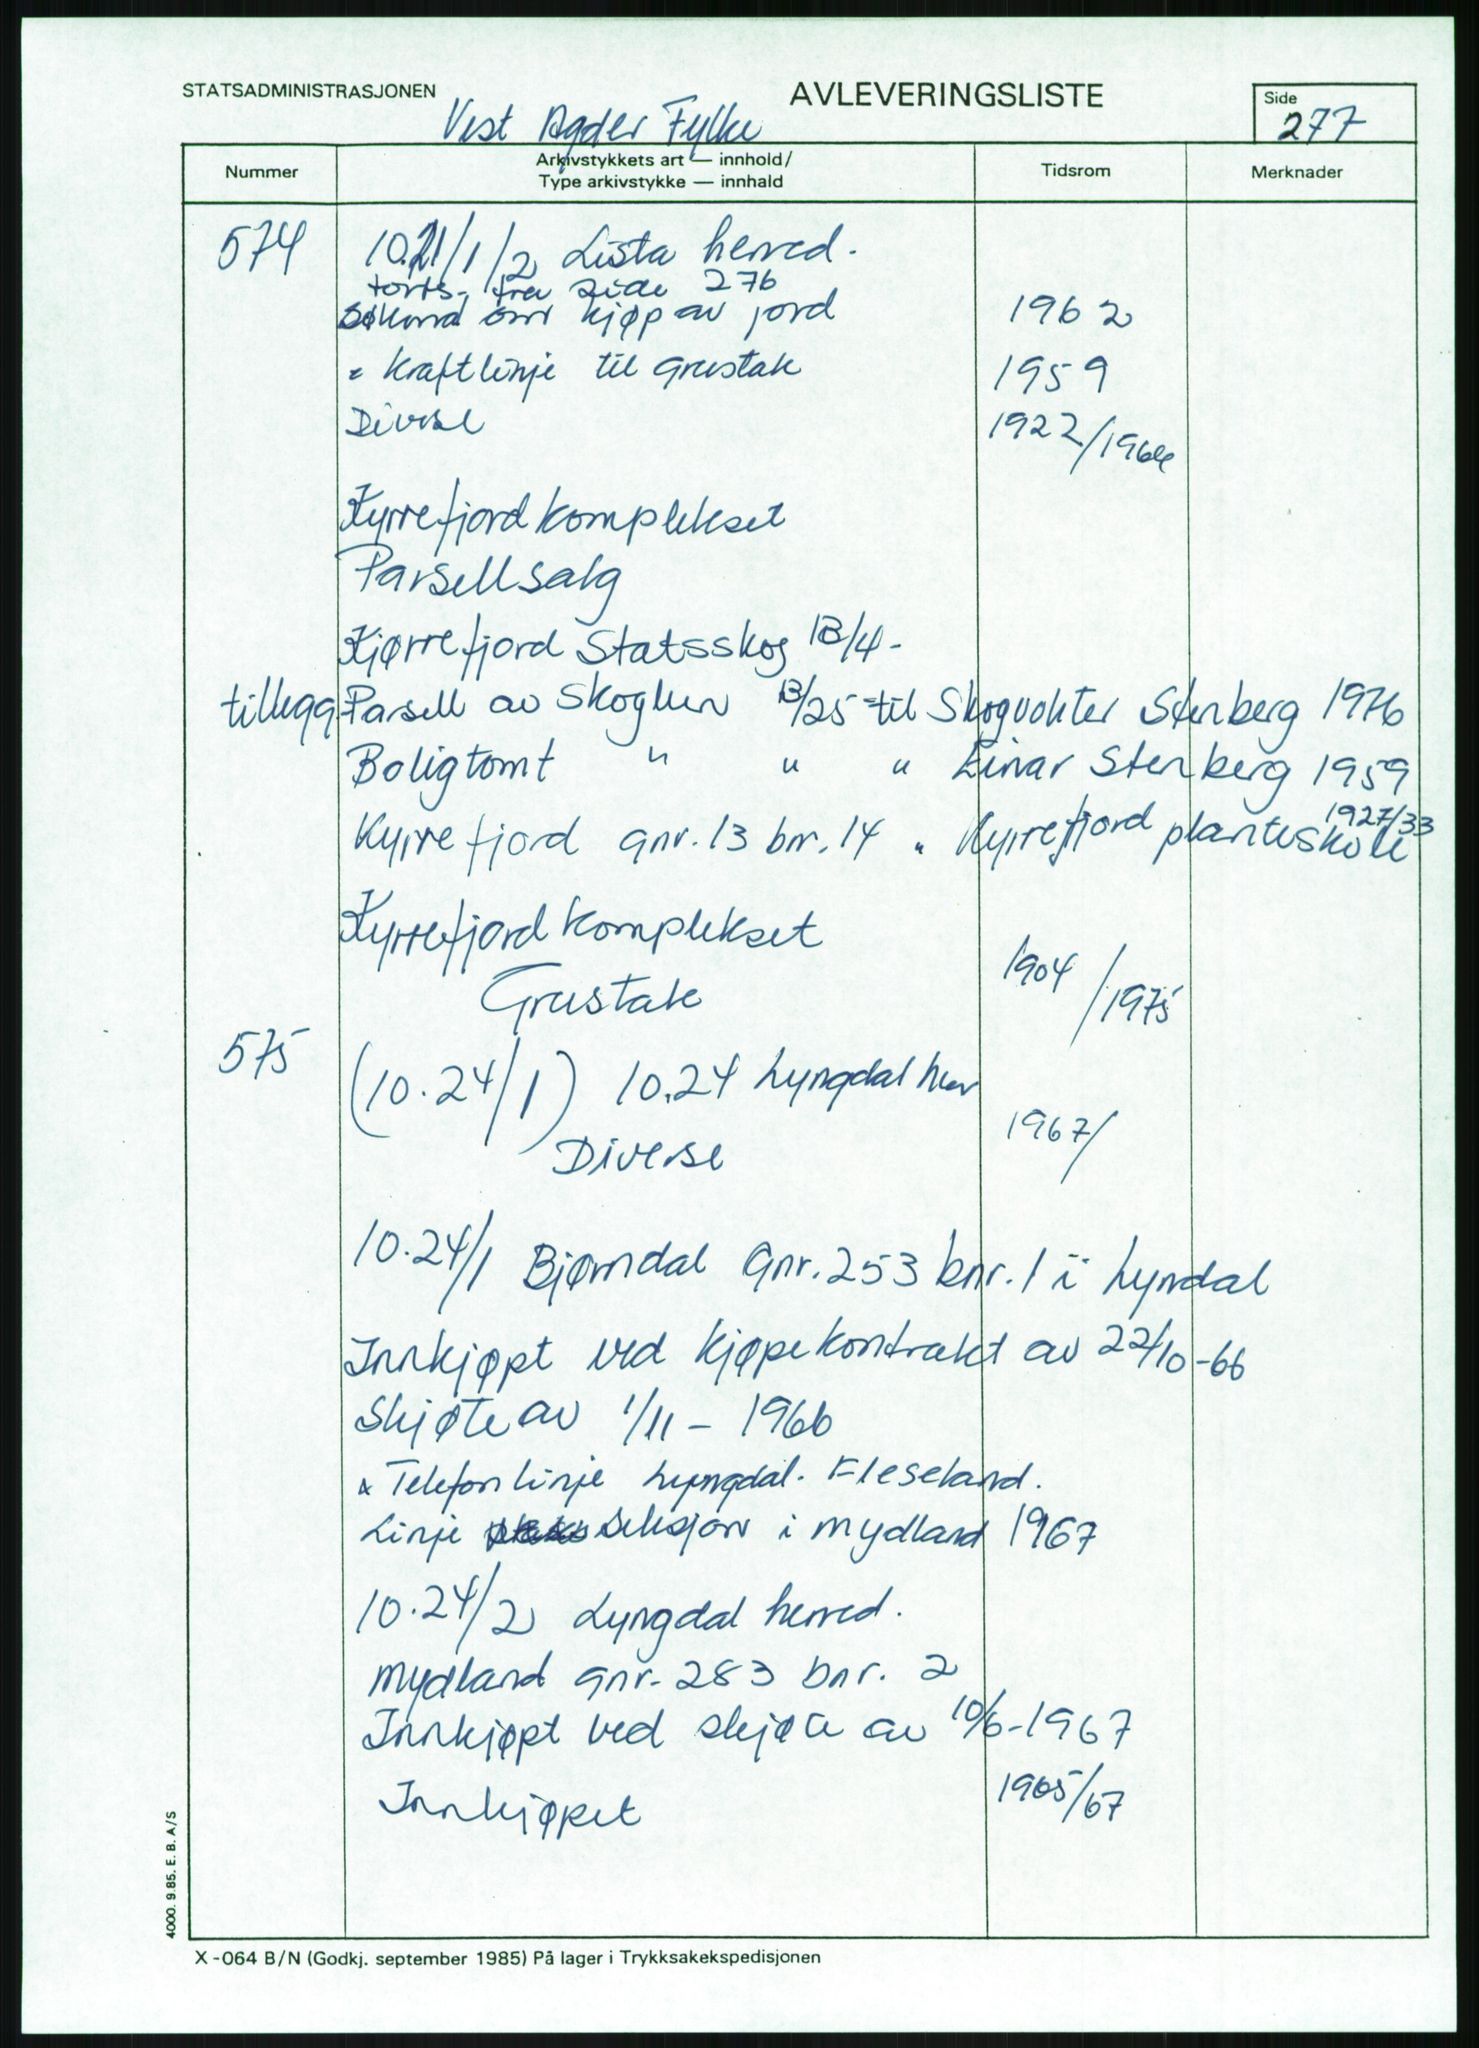 STATSADMINISTRASJONEN
AVLEVERINGSLISTE
Side
277
Vest Agder Fylke
Nummer
Arkivstykkets art — innhold/
Type arkivstykke — innhald
Tidsrom
Merknader
574 10.21/1/2 Lista herred.
forts. fra side 276
Søknad om kjøp av jord 1962
" Kraftlinje til grustak 1959
Diverse 1922/1964
Kyrrefjord komplekset
Parsellsalg
Kjørrefjord Statsskog 13/4-
tillegg Parsell av Skoglun 13/25 til Skogvokter Stenberg 1976
Boligtomt " " " Einar Stenberg 1959
1927/33
Kyrrefjord gnr. 13 bnr. 14 " Kyrrefjord planteskole
Kyrrefjord komplekset
Grustak 1904/1975
575 (10.24/1) 10.24 Lyngdal her
Diverse 1967/
10.24/1 Bjørndal Gnr. 253 bnr. 1 i Lyndal
Innkjøpt ved kjøpekontrakt av 22/10-66
Skjøte av 1/11 - 1966
Telefonlinje Lyngdal. Fleseland.
Linje seksjon i mydland 1967
10.24/2 Lyngdal herred.
mydland gnr. 283 bnr. 2
Innkjøpt ved skjøte av 10/6-1967
Innkjøpet 1965/67
4000. 9.85. E. B. A/S
X-064 B/N (Godkj. september 1985) På lager i Trykksakekspedisjonen